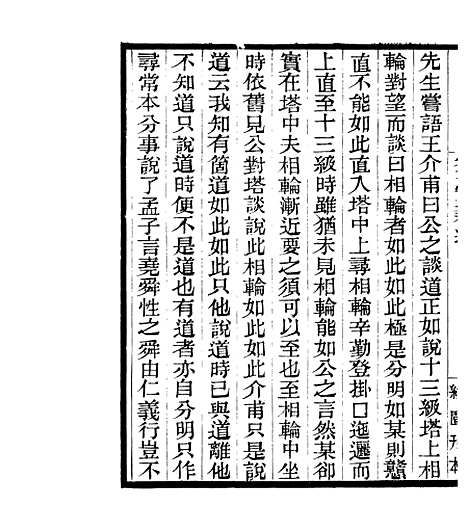 先生嘗語王介甫曰公之談道正如說十三級塔上相
輪對望而談曰相輪者如此如此極是分明如某則戇
直不能如此直入塔中上尋相輪辛勤登掛口迤邐而
上直至十三級時雖猶未見相輪能如公之言然某卻
實在塔中去相輪漸近要之須可以至也至相輪中坐
時依舊見公對塔談說此相輪如此如此介甫只是說
道云我知有箇道如此如此只他說道時已與道離他
不知道只說道時便不是道也有道者亦自分明只作
尋常本分事說了孟子言堯舜性之舜由仁義行豈不